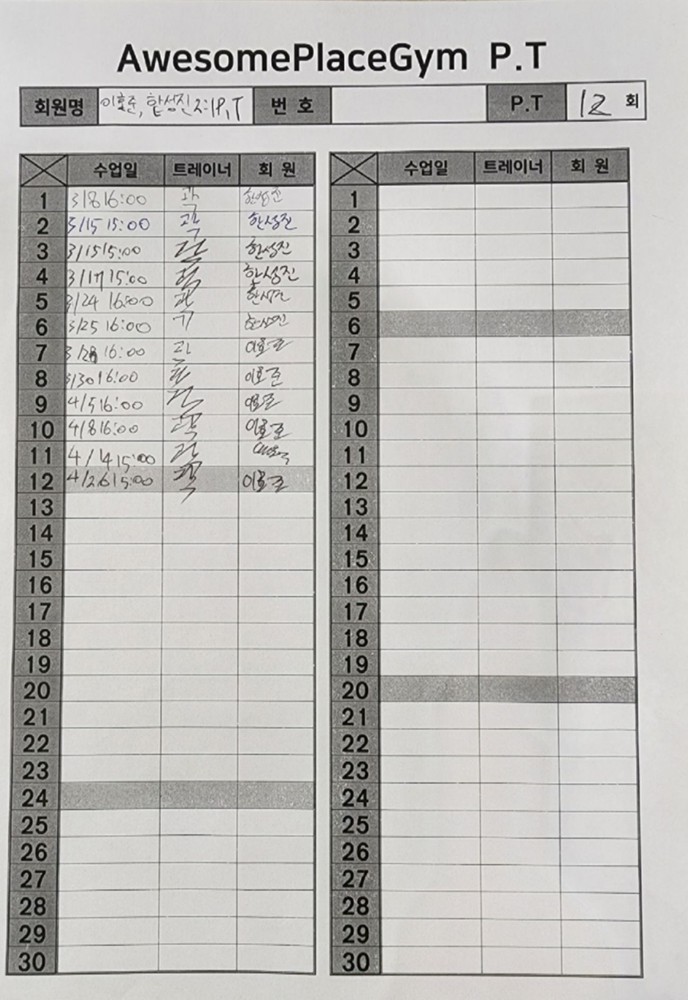 AwesomePlaceGym P.T
회원명 이호준, 한성진 2:1P.T 번 호 P.T 12 회
수업일 트레이너 회 원 수업일 트레이너 회 원
1 3/8 16:00 1
2 3/15 15:00 한성진 2
3 3/15 15:00 한성진 3
4 3/17 15:00 한성진 4
5 3/24 16:00 한성진 5
6 3/25 16:00 한성진 6
7 3/28 16:00 이호준 7
8 3/30 16:00 이호준 8
9 4/5 16:00 이호준 9
10 4/8 16:00 이호준 10
11 4/14 15:00 11
12 4/26 15:00 이호준 12
13 13
14 14
15 15
16 16
17 17
18 18
19 19
20 20
21 21
22 22
23 23
24 24
25 25
26 26
27 27
28 28
29 29
30 30